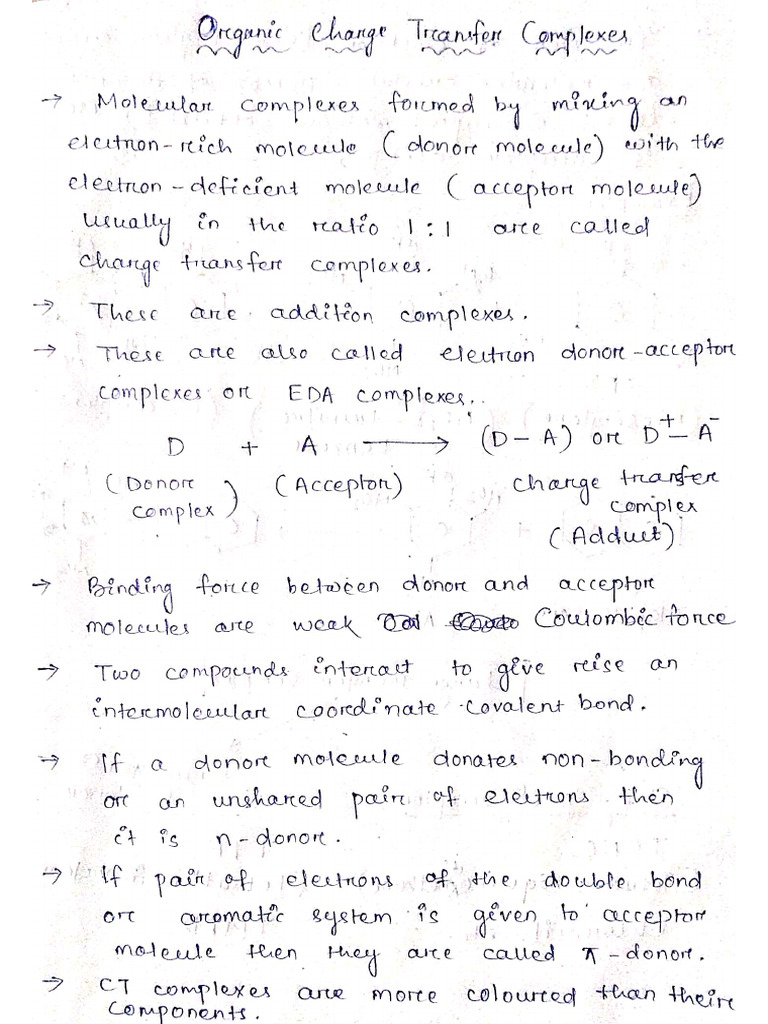 Organic Charge Transfer Complexes
→ Molecular complexes formed by mixing an
electron-rich molecule (donor molecule) with the
electron-deficient molecule (acceptor molecule)
usually in the ratio 1:1 are called
charge transfer complexes.
→ These are addition complexes.
→ These are also called electron donor-acceptor
complexes or EDA complexes.
D + A ⟶ (D-A) or D⁺-A⁻
(Donor complex) (Acceptor) charge transfer
complex
(Adduct)
→ Binding force between donor and acceptor
molecules are weak Coulombic force
→ Two compounds interact to give rise an
intermolecular coordinate covalent bond.
→ If a donor molecule donates non-bonding
or an unshared pair of electrons then
it is n-donor.
→ If pair of electrons of the double bond
or aromatic system is given to acceptor
molecule then they are called π-donor.
→ CT complexes are more coloured than their
components.